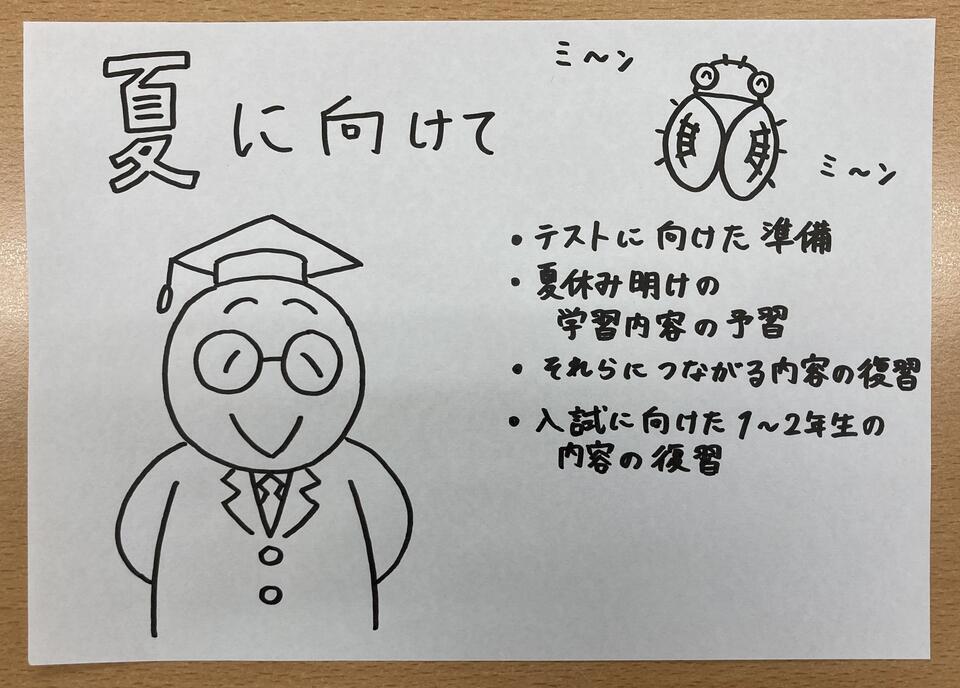 夏に向けて
ミ〜ン
ミ〜ン
・テストに向けた準備
・夏休み明けの
学習内容の予習
・それらにつながる内容の復習
・入試に向けた1〜2年生の
内容の復習